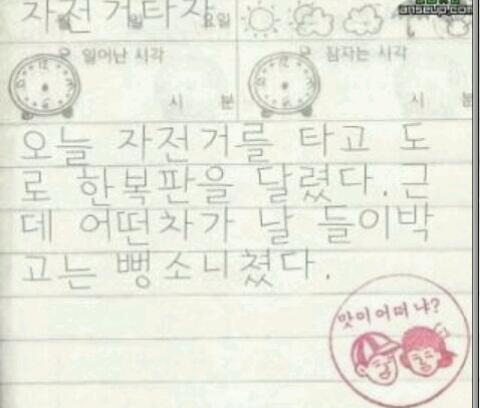 자전거타자
월 일 요일
일어난 시각 잠자는 시각
시 분 시 분
오늘 자전거를 타고 도
로 한복판을 달렸다. 근
데 어떤차가 날 들이박
고는 뺑소니쳤다.
맛이 어떠냐?